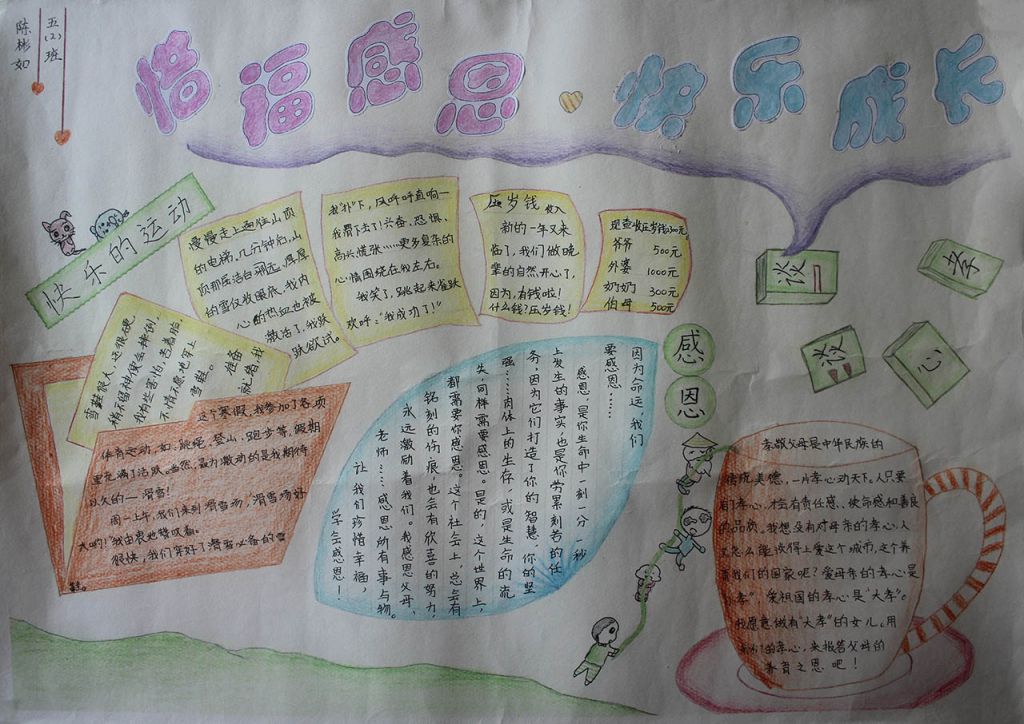 五(2)班
陈彬如
惜福感恩 快乐成长
快乐的运动
这个寒假,我参加了各项
体育运动,如:跳绳、登山、跑步等,假期
里充满了活跃。当然,最为激动的是我期待
以久的——滑雪!
周一上午,我们来到滑雪场,"滑雪场好
大哟!"我由衷地赞叹着。
很快,我们穿好了滑雪必备的雪
雪鞋很大,还很硬,
稍不留神便会摔倒,
我有些害怕,丢着脸
不情不愿地穿上
雪鞋。
准备
就绪,我
慢慢走上通往山顶
的电梯,几分钟后,山
顶那层洁白
的雪仅收眼底,我内
心的热血也被
激活了,我跃
跃欲试。
我"扑"下,风呼呼直响——
我滑下去了!兴奋、恐惧、
高兴、慌张……更多复杂的
心情围绕在我左右。
我笑了,跳起来雀跃
欢呼:"我成功了!"
压岁钱 收入
新的一年又来
临了,我们做晚
辈的自然开心了,
因为,有钱啦!
什么钱?压岁钱!
爷爷 500元
外婆 1000元
奶奶 300元
伯母 500元
谈一谈"孝心"
感恩
因为命运,我们
要感恩……
感恩,是你生命中一刻一分一秒
上发生的事实,也是你劳累刻苦的任
务,因为它们打造了你的智慧、你的坚
强……肉体上的生存,或是生命的流
失,同样需要感恩。是的,这个世界上,
都需要你感恩。这个社会上,总会有
铭刻的伤痕,也会有欣喜的努力,
永远激励着我们。我感恩父母、
老师……感恩所有事与物。
让我们珍惜幸福,
学会感恩!
孝敬父母是中华民族的
传统美德,一片孝心动天下。人只要
有了孝心,才会有责任感、使命感和善良
的品质。我想没有对母亲的孝心,人
又怎么能谈得上爱这个城市,这个养
育我们的国家呢?爱母亲的孝心是
"小孝",爱祖国的孝心是"大孝"。
我愿意做有"大孝"的女儿,用
的孝心,来报答父母的
养育之恩吧!